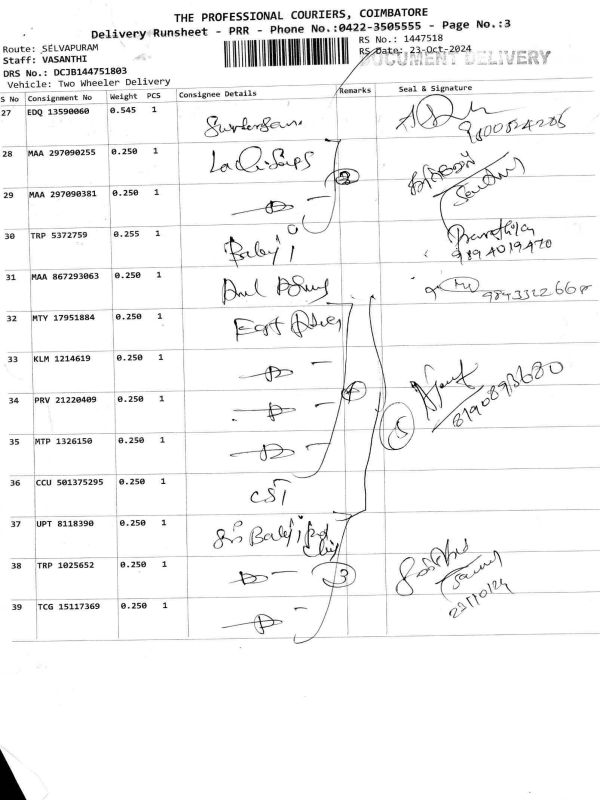 THE PROFESSIONAL COURIERS, COIMBATORE
Delivery Runsheet - PRR - Phone No.:0422-3505555 - Page No.:3
Route: SELVAPURAM
RS No.: 1447518
Staff: VASANTHI
RS Date: 23-Oct-2024
DOCUMENT DELIVERY
DRS No.: DCJB144751803
Vehicle: Two Wheeler Delivery
S No Consignment No Weight PCS Consignee Details Remarks Seal & Signature
27 EDQ 13590060 0.545 1
28 MAA 297090255 0.250 1
2
29 MAA 297090381 0.250 1
30 TRP 5372759 0.255 1 Balaji
9894019470
31 MAA 867293063 0.250 1
32 MTY 17951884 0.250 1
33 KLM 1214619 0.250 1
8190893680
34 PRV 21220409 0.250 1
4
5
35 MTP 1326150 0.250 1
36 CCU 501375295 0.250 1 CST
37 UPT 8118390 0.250 1 Sri Balaji
38 TRP 1025652 0.250 1 3
23/10/24
39 TCG 15117369 0.250 1